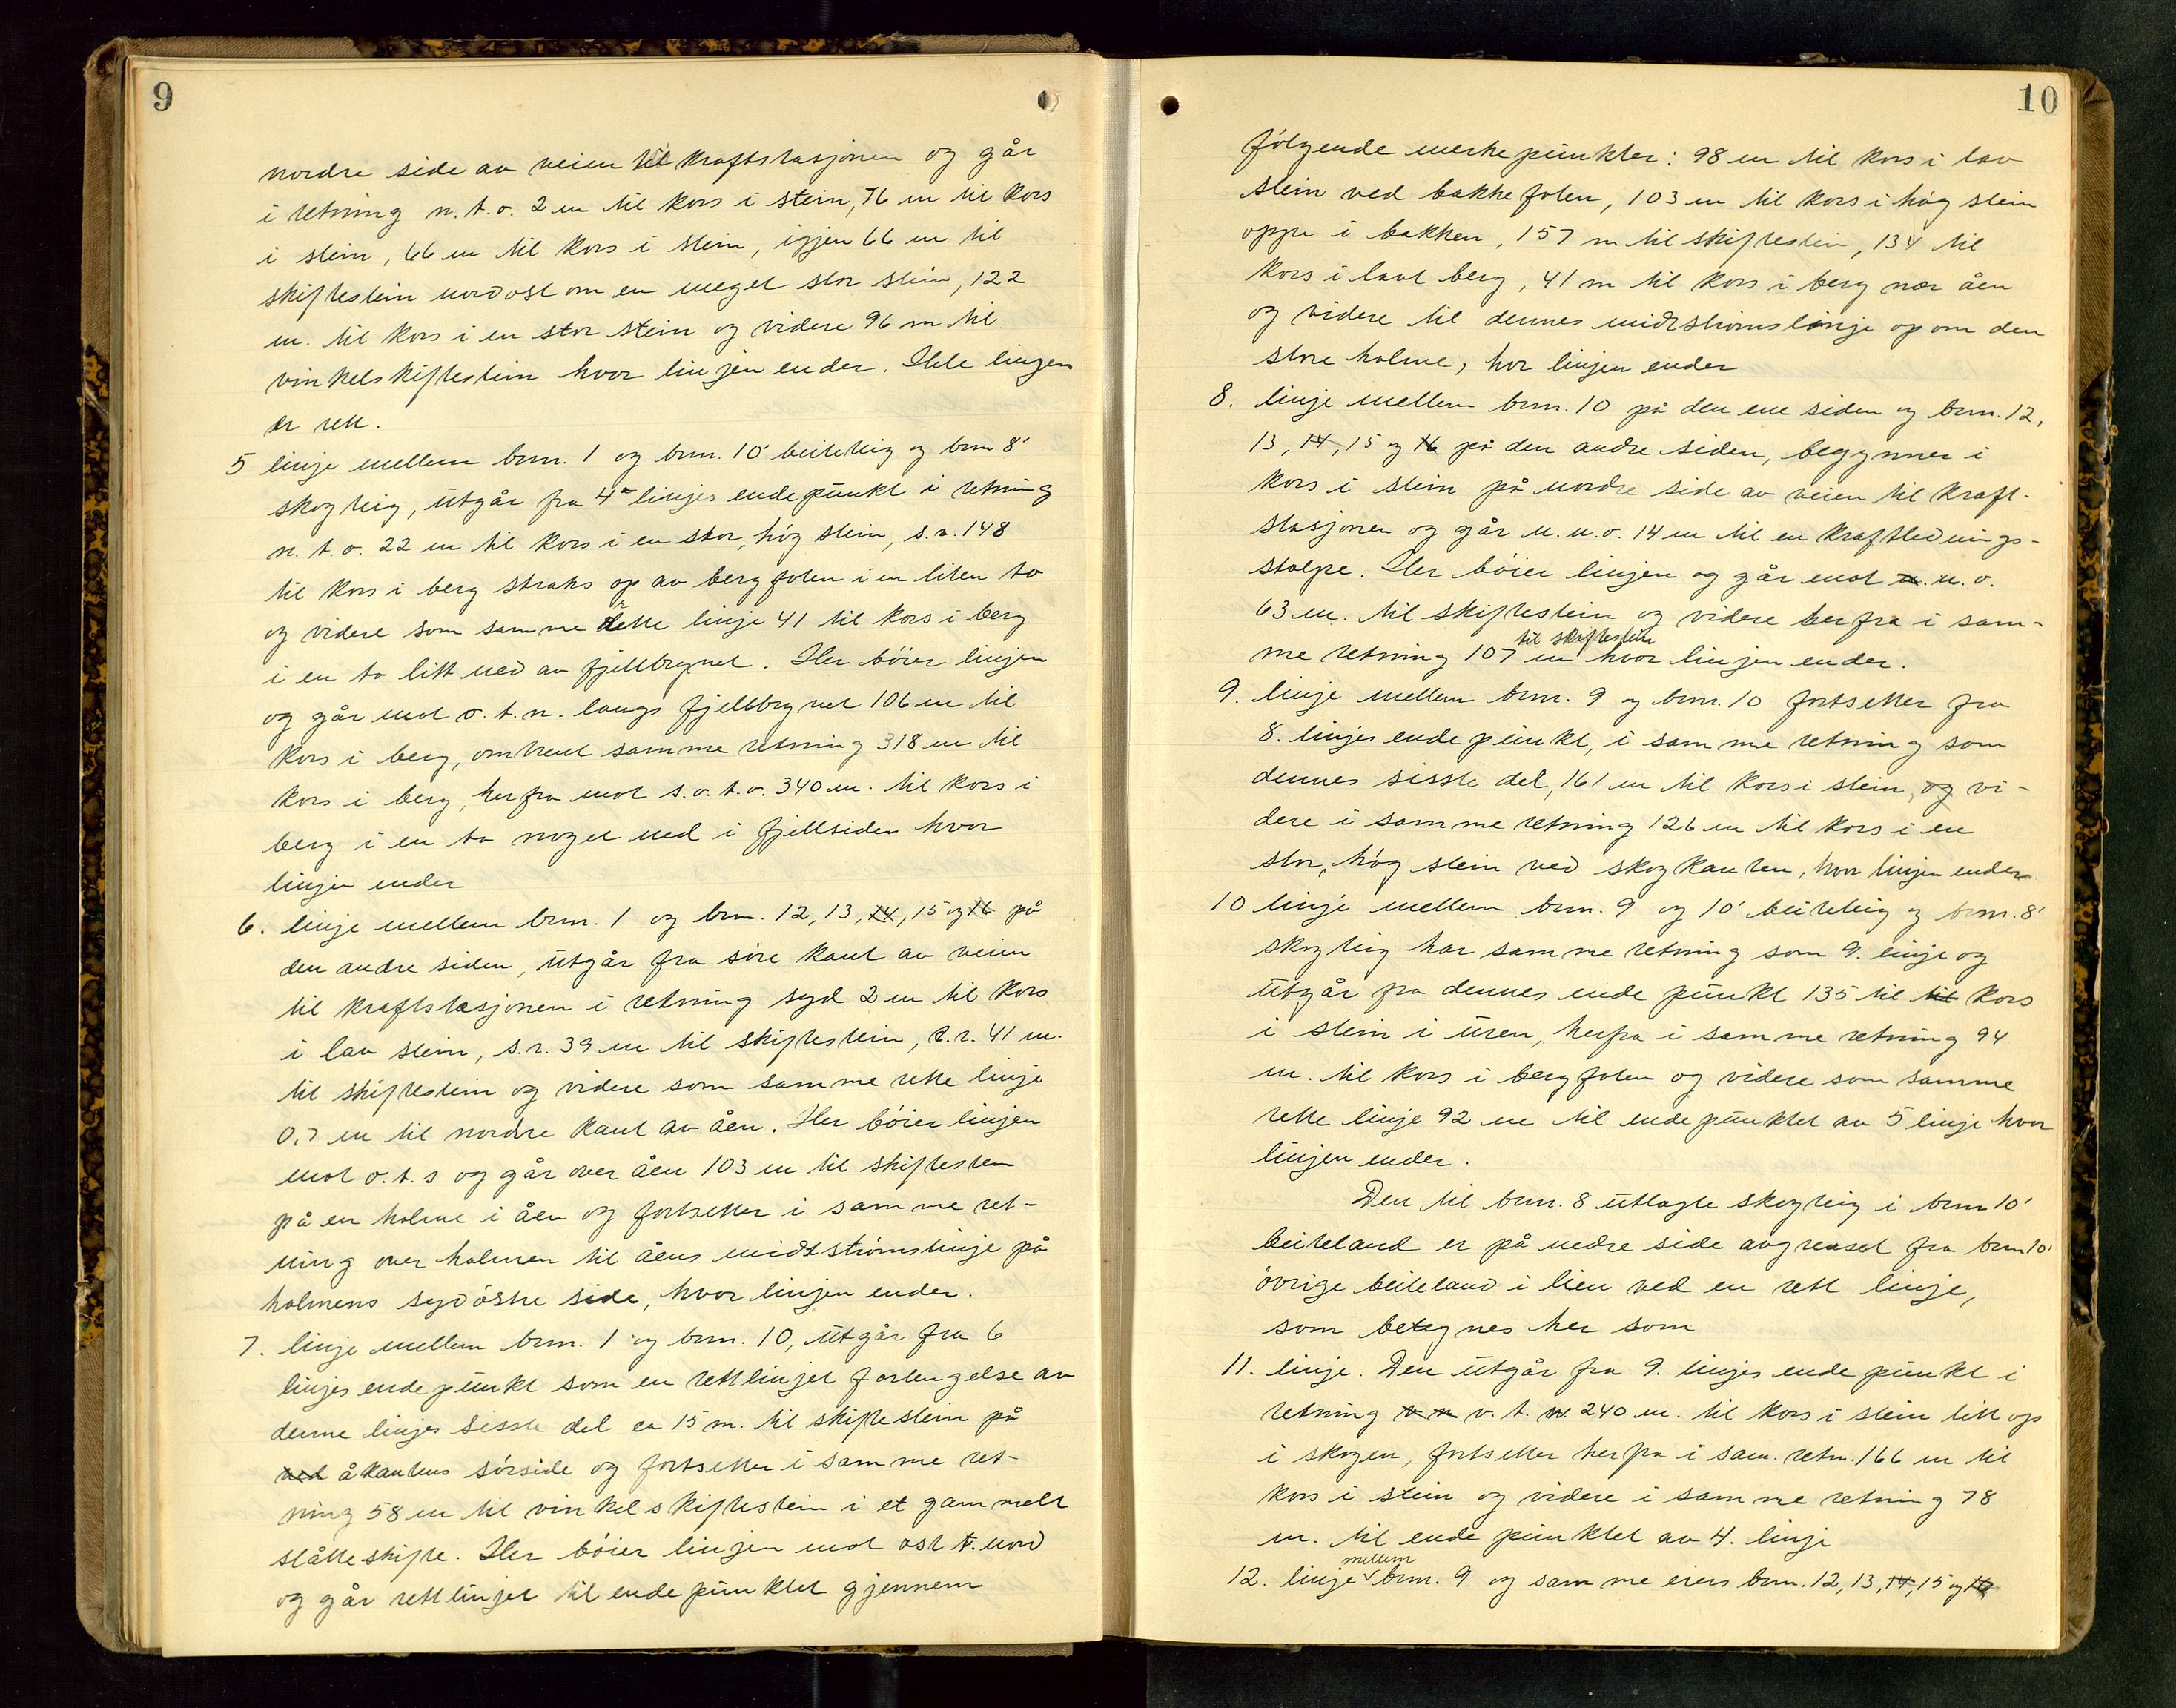 9
nordre side av veien til kraftstasjonen og går
i retning n.t.o. 2 m til kors i stein, 76 m til kors
i stein, 66 m til kors i stein, igjen 66 m til
skiftestein nordost om en meget stor stein, 122
m. til kors i en stor stein og videre 96 m til
vinkelskiftestein hvor linjen ender. Hele lingen
er rett.
5 linje mellem brnr. 1 og brnr. 10' beiteteig og brnr 8'
skogteig, utgår fra 4de linjes endepunkt i retning
n.t.o. 22 m til kors i en stor, høg stein, s.r. 148
til kors i berg straks op av bergfoten i en liten to
og videre som samme rette linje 41 til kors i berg
i en to litt ned av fjellbrynet. Her bøier linjen
og går mot o.t.n. langs fjellbrynet 106 m til
kors i berg, omtrent samme retning 318 m til
kors i berg, herfra mot s.o.t.o. 340 m. til kors i
berg i en to noget ned i fjellsiden hvor
linjen ender
6. linje mellem brnr. 1 og brnr. 12, 13, 14, 15 og 16 på
den andre siden, utgår fra søre kant av veien
til kraftstasjonen i retning syd 2 m til kors
i lav stein, s.r. 39 m til skiftestein, s.r. 41 m.
til skiftestein og videre som samme rette linje
0,7 m til nordre kant av åen. Her bøier linjen
mot o.t.s og går over åen 103 m til skiftesten
på en holme i åen og fortsetter i samme ret-
ning over holmen til åens midtstrømslinje på
holmens sydøstre side, hvor linjen ender.
7. linje mellem brnr. 1 og brnr. 10, utgår fra 6
linjes endepunkt som en rettlinjet forlengelse av
denne linjes sisste del er 15 m. til skiftestein på
ved åkantens sørside og fortsetter i samme ret-
ning 58 m til vinkelskiftestein i et gammelt
slåtteskifte. Her bøier linjen mot ost t. nord
og går rettlinjet til endepunktet gjennem
10
følgende merkepunkter: 98 m til kors i lav
stein ved bakkefoten, 103 m til kors i høg stein
oppe i bakken, 157 m til skiftestein, 134 til
kors i lavt berg, 41 m til kors i berg nær åen
og videre til dennes midtstrømslinje op om den
store holme, hvor linjen ender
8. linje mellem brnr. 10 på den ene siden og brnr. 12,
13, 14, 15 og 16 på den andre siden, begynner i
kors i stein på nordre side av veien til kraft-
stasjonen og går n.n.o. 14 m til en kraftlednings-
stolpe. Her bøier linjen og går mot n. n.o.
63 m. til skiftestein og videre herfra i sam-
til skiftestein
me retning 107 m hvor linjen ender.
9. linje mellem brnr. 9 og brnr. 10 fortsetter fra
8. linjes endepunkt, i samme retning som
dennes sisste del, 161 m til kors i stein, og vi-
dere i samme retning 126 m til kors i en
stor, høg stein ved skogkanten, hvor linjen ender
10 linje mellem brnr. 9 og 10' beiteteig og brnr. 8'
skogteig har samme retning som 9. linje og
utgår fra dennes endepunkt 135 til til kors
i stein i uren, herfra i samme retning 94
m. til kors i bergfoten og videre som samme
rette linje 92 m til endepunktet av 5 linje hvor
linjen ender.
Den til brnr. 8 utlagte skogteig i brnr 10'
beiteland er på nedre side avgrenset fra brnr 10'
øvrige beiteland i lien ved en rett linje,
som betegnes her som
11. linje. Den utgår fra 9. linjes endepunkt i
retning v n v.t.n. 240 m. til kors i stein litt op
i skogen, fortsetter herfra i sam. retn. 166 m til
kors i stein og videre i samme retning 78
m. til endepunktet av 4. linje
mellem
12. linje brnr. 9 og samme eiers brnr. 12, 13, 14, 15 og 16